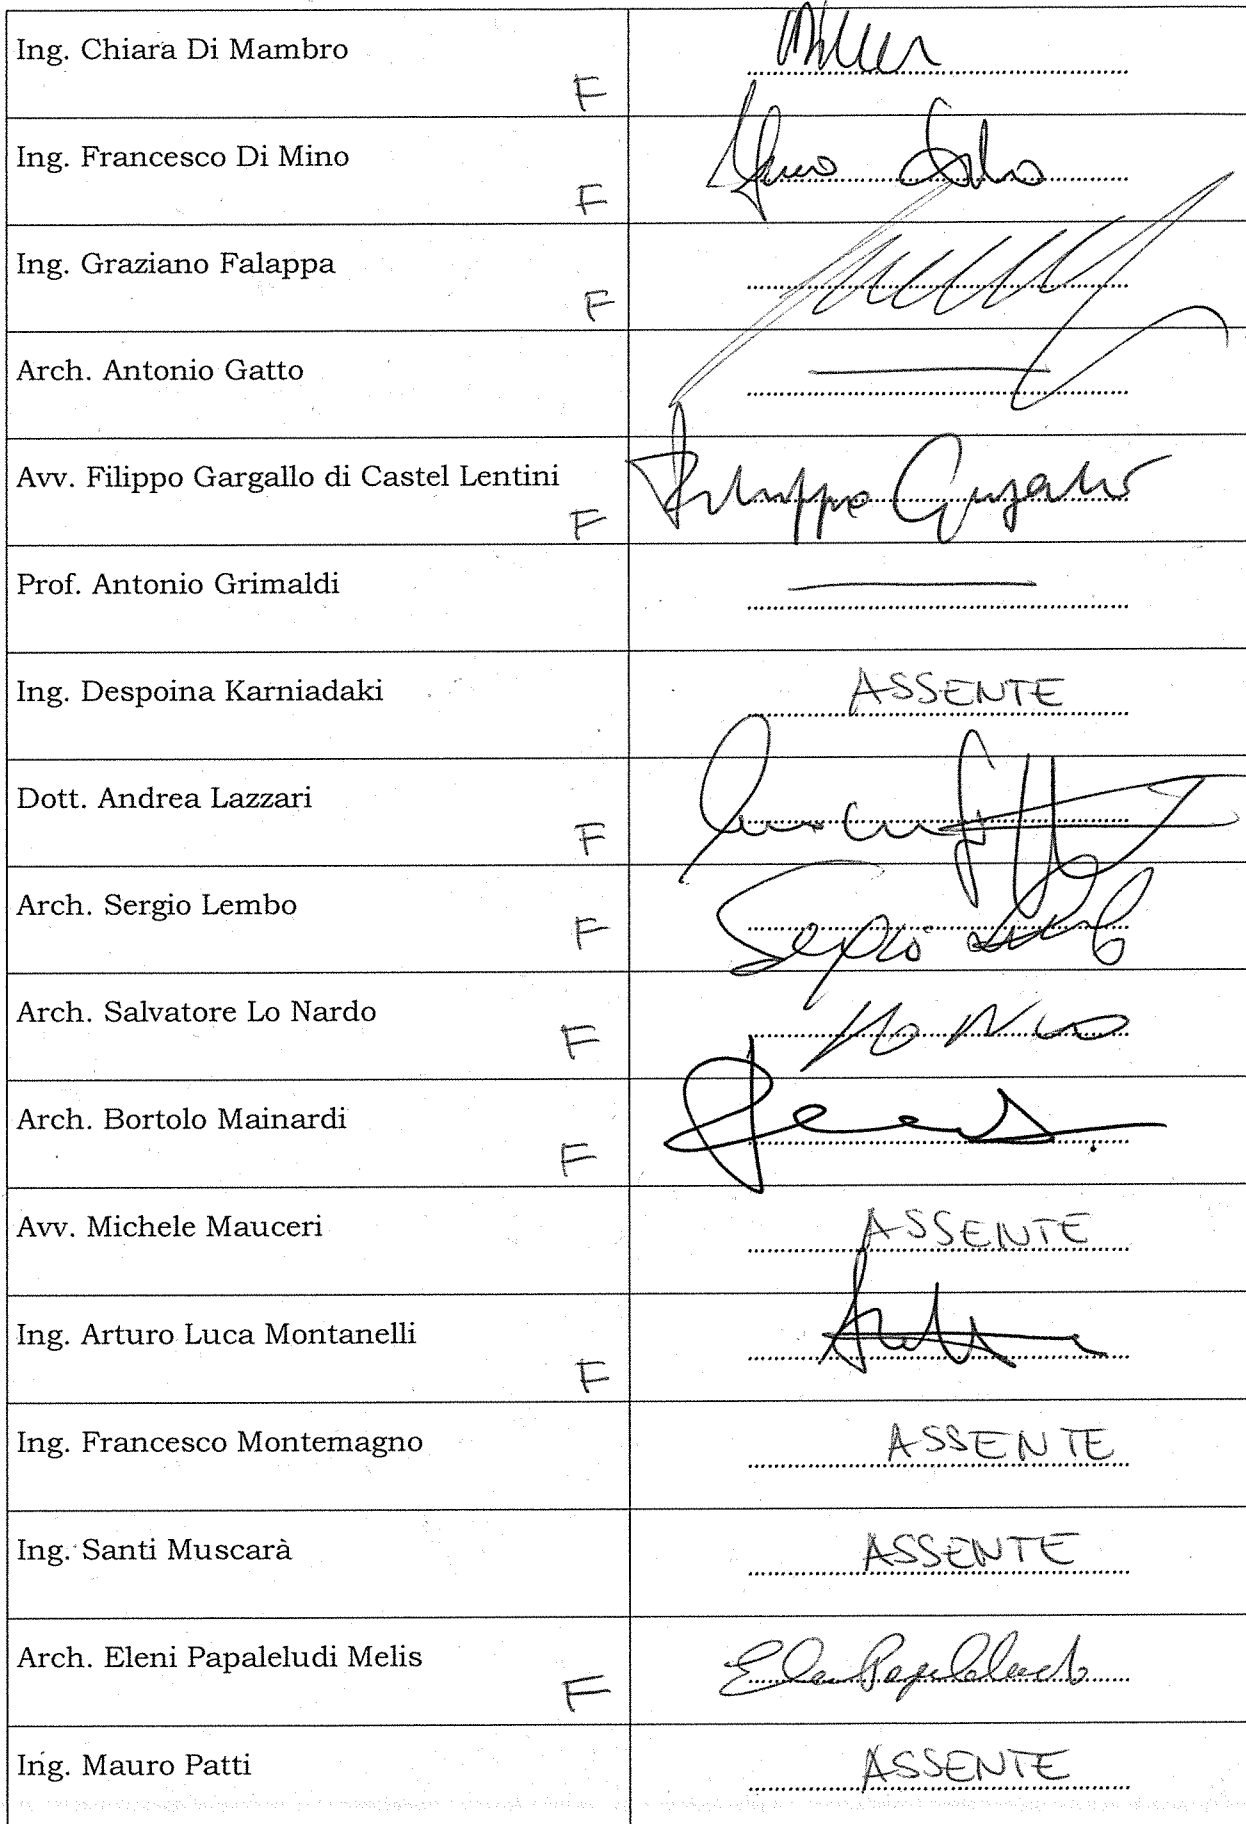 Ing. Chiara Di Mambro
F
Ing. Francesco Di Mino
F
Ing. Graziano Falappa
F
Arch. Antonio Gatto
Avv. Filippo Gargallo di Castel Lentini
F Filippo Gargallo
Prof. Antonio Grimaldi
Ing. Despoina Karniadaki ASSENTE
Dott. Andrea Lazzari
F
Arch. Sergio Lembo
F Sergio Lembo
Arch. Salvatore Lo Nardo
F
Arch. Bortolo Mainardi
F
Avv. Michele Mauceri ASSENTE
Ing. Arturo Luca Montanelli
F
Ing. Francesco Montemagno ASSENTE
Ing. Santi Muscarà ASSENTE
Arch. Eleni Papaleludi Melis
F
Ing. Mauro Patti ASSENTE